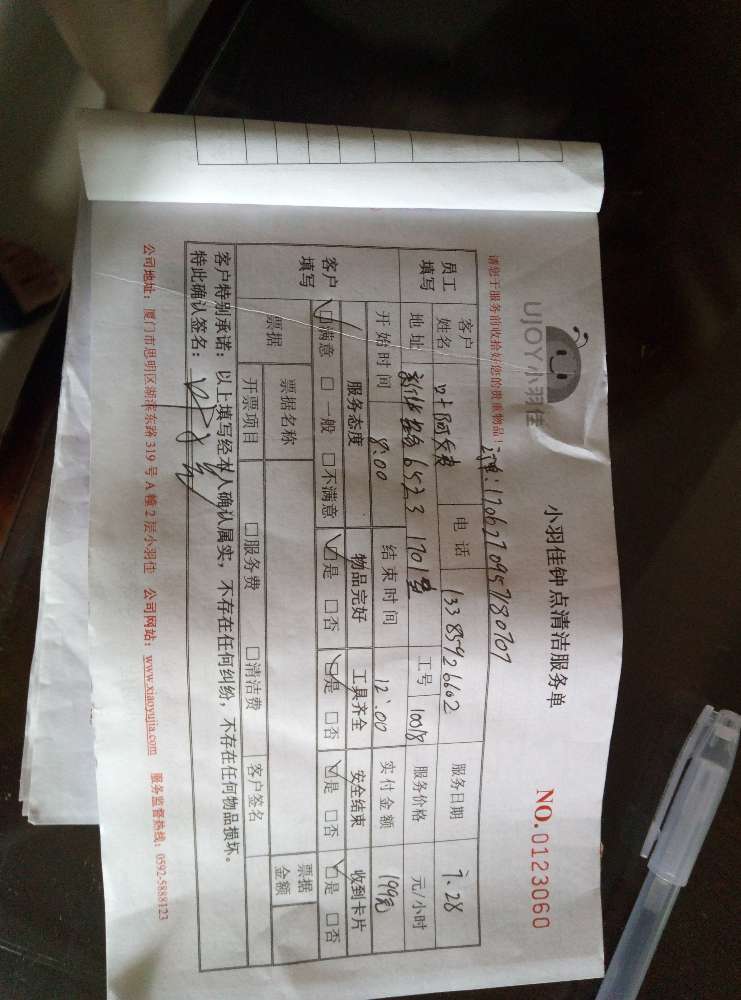 UJOY小羽佳
小羽佳钟点清洁服务单
NO.0123060
请您于服务前收拾好您的贵重物品!
员工填写 客户姓名 叶阿 电话 13385926602 服务日期 7.28
地址 653 1701 工号 10018 服务价格 元/小时
开始时间 8:00 结束时间 12:00 实付金额 199元
客户填写 服务态度 物品完好 工具齐全 安全结束 收到卡片
☑满意 □一般 □不满意 ☑是 □否 ☑是 □否 ☑是 □否 ☑是 □否
票据 票据名称 票据金额
开票项目 □服务费 □清洁费 客户签名
客户特别承诺:以上填写经本人确认属实,不存在任何纠纷,不存在任何物品损坏。
特此确认签名:
公司地址:厦门市思明区湖滨东路 319 号 A 幢 2 层小羽佳 公司网站:www.xiaoyujia.com 服务监督热线:0592-5888123